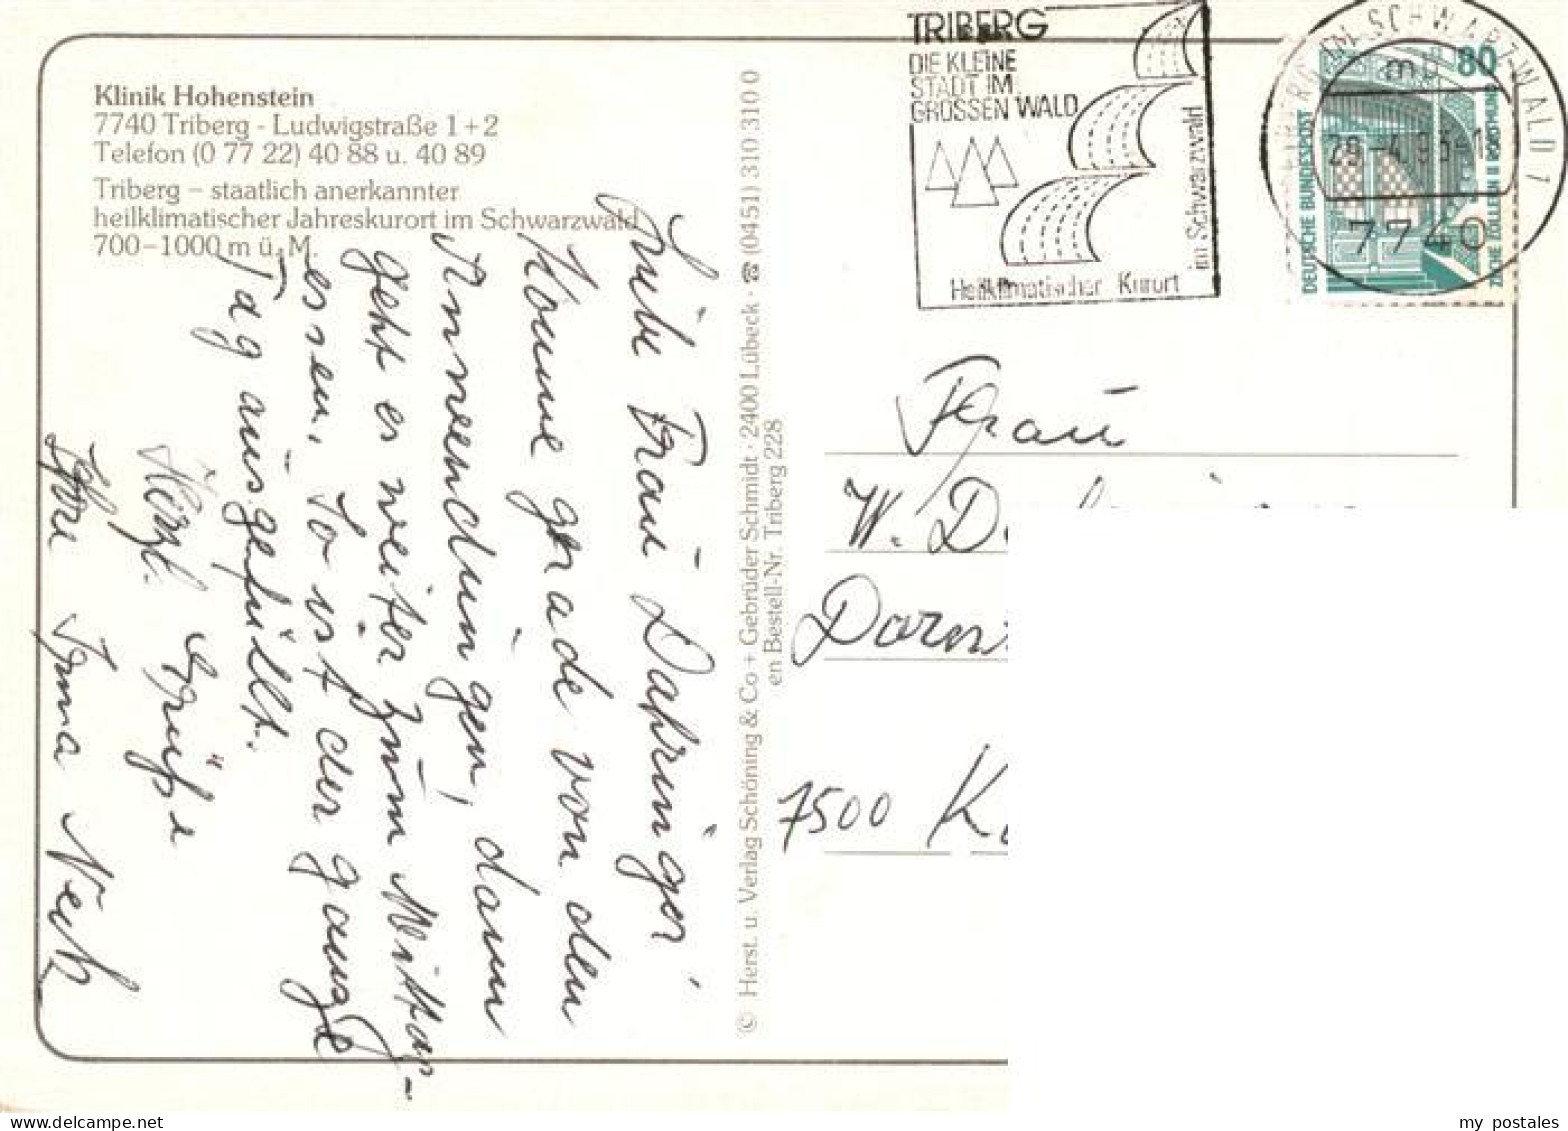 Klinik Hohenstein
7740 Triberg - Ludwigstraße 1+2
Telefon (0 77 22) 40 88 u. 40 89
Triberg – staatlich anerkannter
heilklimatischer Jahreskurort im Schwarzwald
700–1000 m ü. M.
Liebe Frau Dahringer
Komme gerade von den
Anwendungen, dann
geht es weiter zum Mittag-
essen. So ist der ganze
Tag ausgefüllt.
Herzl. Grüße
Ihre Irma Neck
© Herst. u. Verlag Schöning & Co + Gebrüder Schmidt · 2400 Lübeck · ☎ (0451) 310 310 0
en Bestell-Nr. Triberg 228
TRIBERG
DIE KLEINE
STADT IM
GROSSEN WALD
im Schwarzwald
Heilklimatischer Kurort
TRIBERG IM SCHWARZWALD 1
mb
29.-4.93-1
7740
80
DEUTSCHE BUNDESPOST
ZECHE ZOLLERN II DORTMUND
Frau
W. D
7500 K
my postales